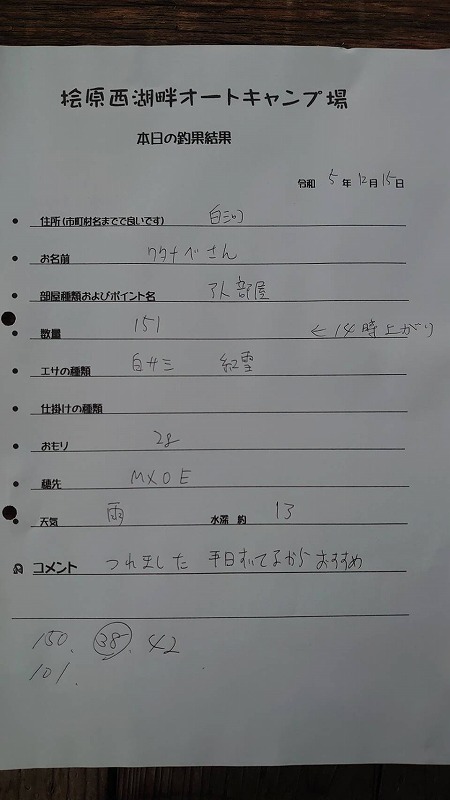 桧原西湖畔オートキャンプ場
本日の釣果結果
令和 5 年 12 月 15 日
住所(市町村名までで良いです) 白河
お名前 ワタナベさん
部屋種類およびポイント名 7人部屋
数量 151 ←14時上がり
エサの種類 白サシ 紅雪
仕掛けの種類
おもり 2g
穂先
天気 雨 水深 約 13
コメント つれました 平日すいてるからおすすめ
150. 38. 42
101.